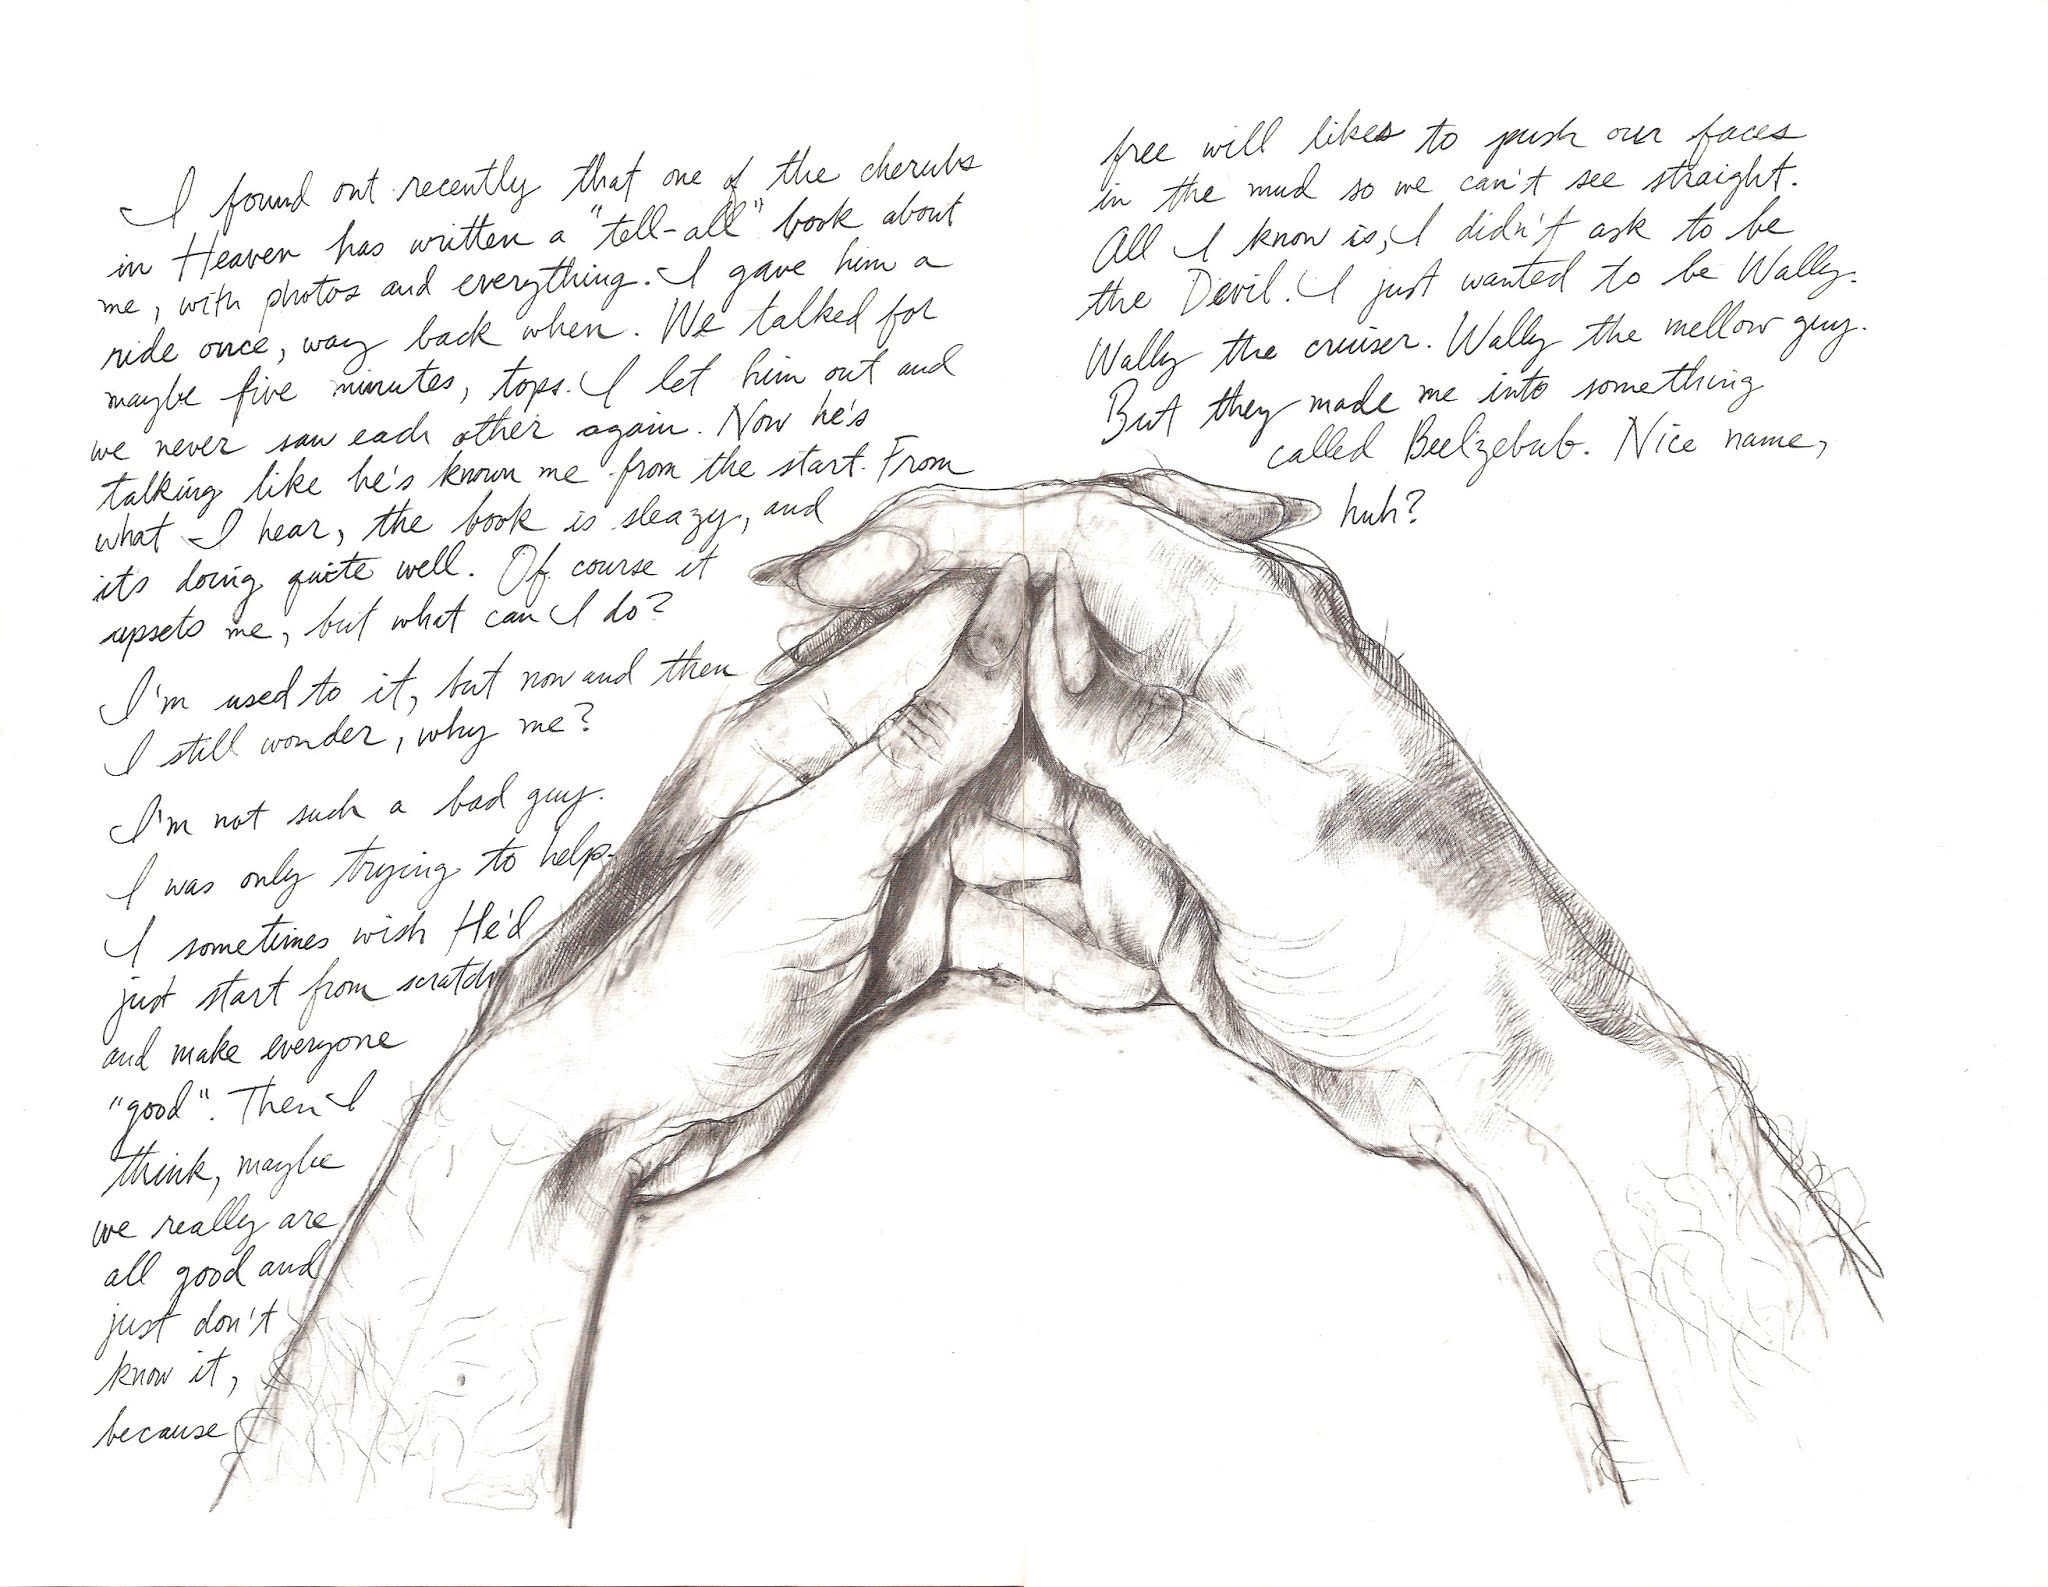 I found out recently that one of the cherubs
in Heaven has written a "tell-all" book about
me, with photos and everything. I gave him a
ride once, way back when. We talked for
maybe five minutes, tops. I let him out and
we never saw each other again. Now he's
talking like he's known me from the start. From
what I hear, the book is sleazy, and
it's doing quite well. Of course it
upsets me, but what can I do?
I'm used to it, but now and then
I still wonder, why me?
I'm not such a bad guy.
I was only trying to help.
I sometimes wish He'd
just start from scratch
and make everyone
"good". Then I
think, maybe
we really are
all good and
just don't
know it,
because
free will likes to push our faces
in the mud so we can't see straight.
All I know is, I didn't ask to be
the Devil. I just wanted to be Wally.
Wally the cruiser. Wally the mellow guy.
But they made me into something
called Beelzebub. Nice name,
huh?